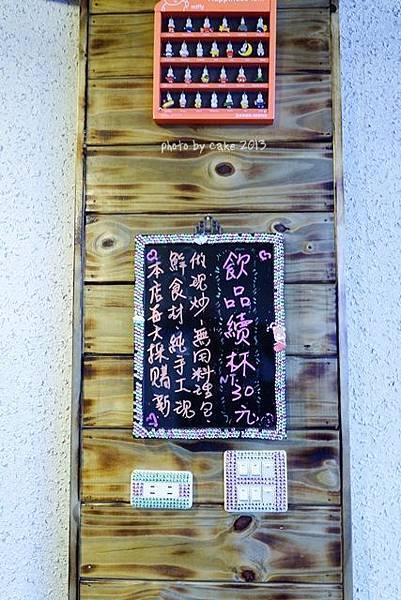 miffy
photo by cake 2013
飲品續杯NT30元
本店每天採購新
鮮食材、純手工現
做現炒~無用料理包